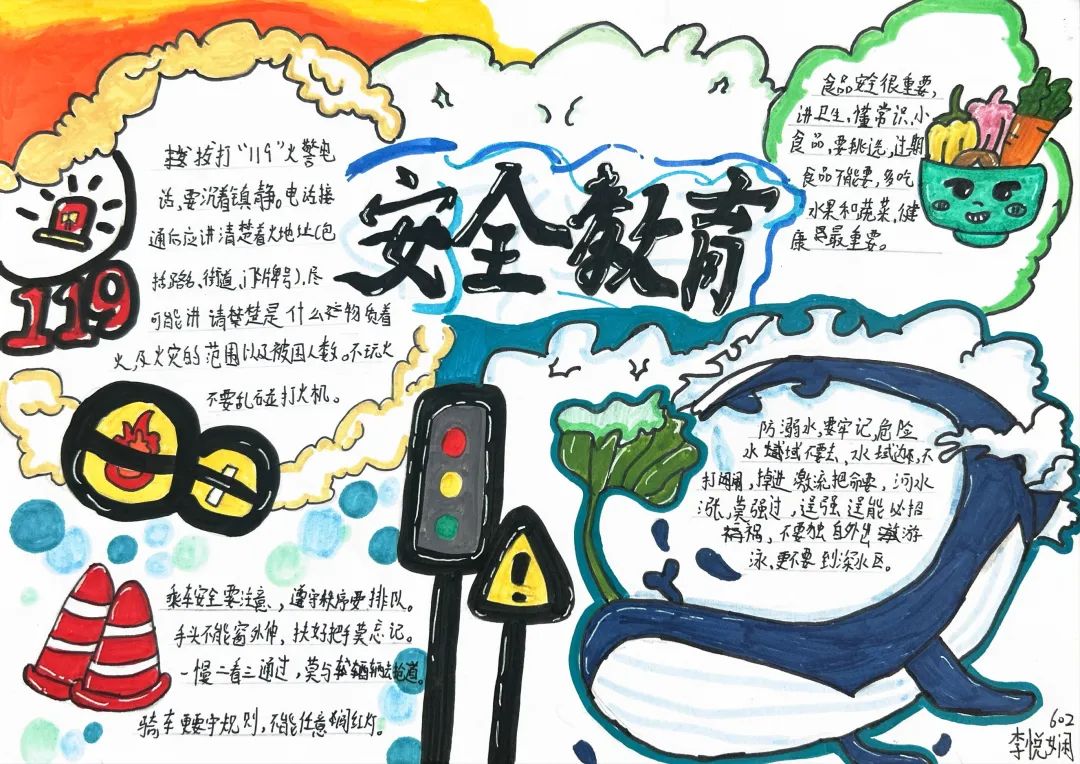 安全教育
拨打“119”火警电
话,要沉着镇静。电话接
通后应讲清楚着火地址(包
括路名、街道、门牌号),尽
可能讲请楚是什么物质着
火,及火灾的范围以及被困人数。不玩火
不要乱碰打火机。
119
食品安全很重要,
讲卫生,懂常识,小
食品,要挑选,过期
食品不能要,多吃
水果和蔬菜,健
康是最重要。
防溺水,要牢记,危险
水域不要去、水域边,不
打闹,掉进激流把命要,河水
涨,莫强过,逞强逞能必招
祸,不要独自外出游
泳,更不要到深水区。
乘车安全要注意,遵守秩序要排队。
手头不能窗外伸,扶好把手莫忘记。
一慢二看三通过,莫与车辆去抢道。
骑车更要守规则,不能任意闯红灯。
602
李悦娴